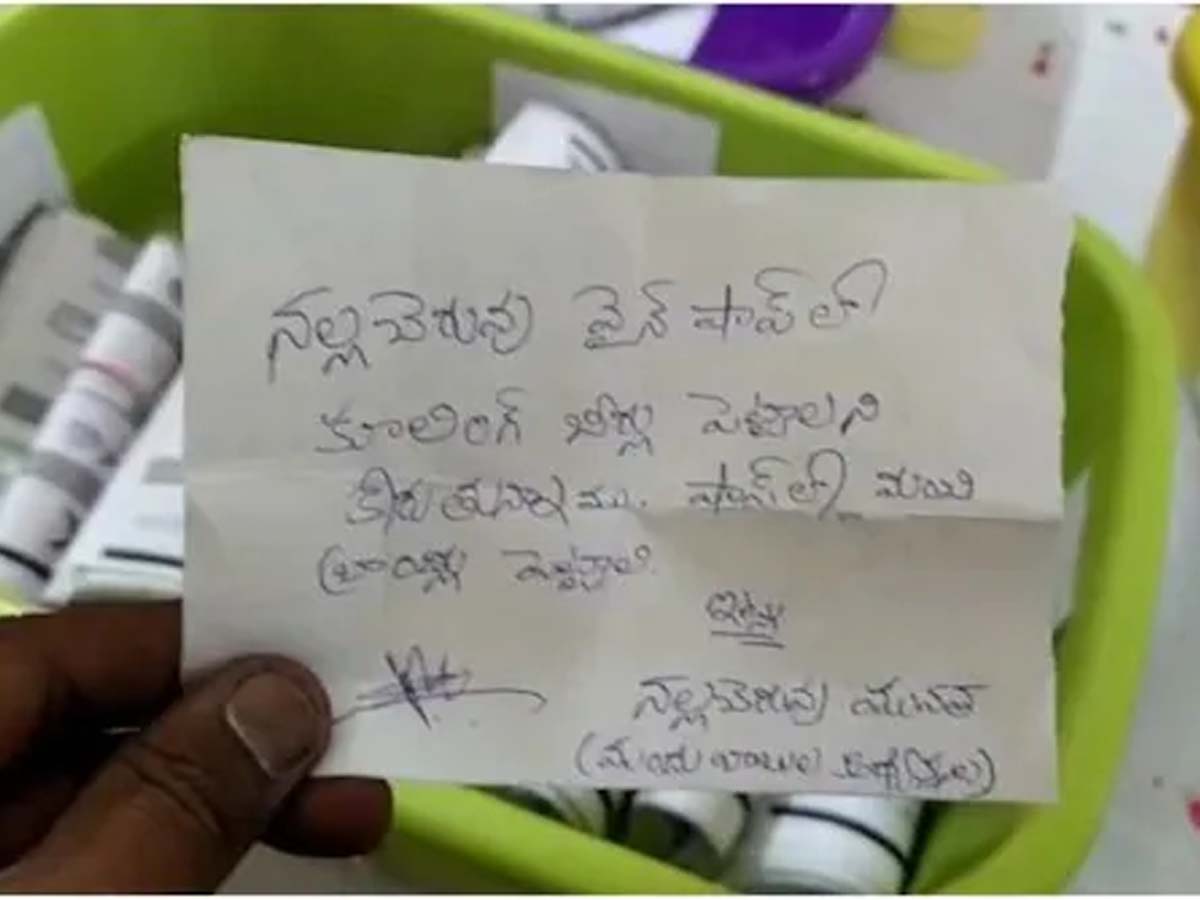 నల్లచెరువు వైన్ షాప్ లో
కూలింగ్ బీర్లు పెట్టాలని
కోరుతున్నాము. షాప్ లో మంచి
బ్రాండ్లు పెట్టాలి.
ఇట్లు
నల్లచెరువు యువత
(మందుబాబుల